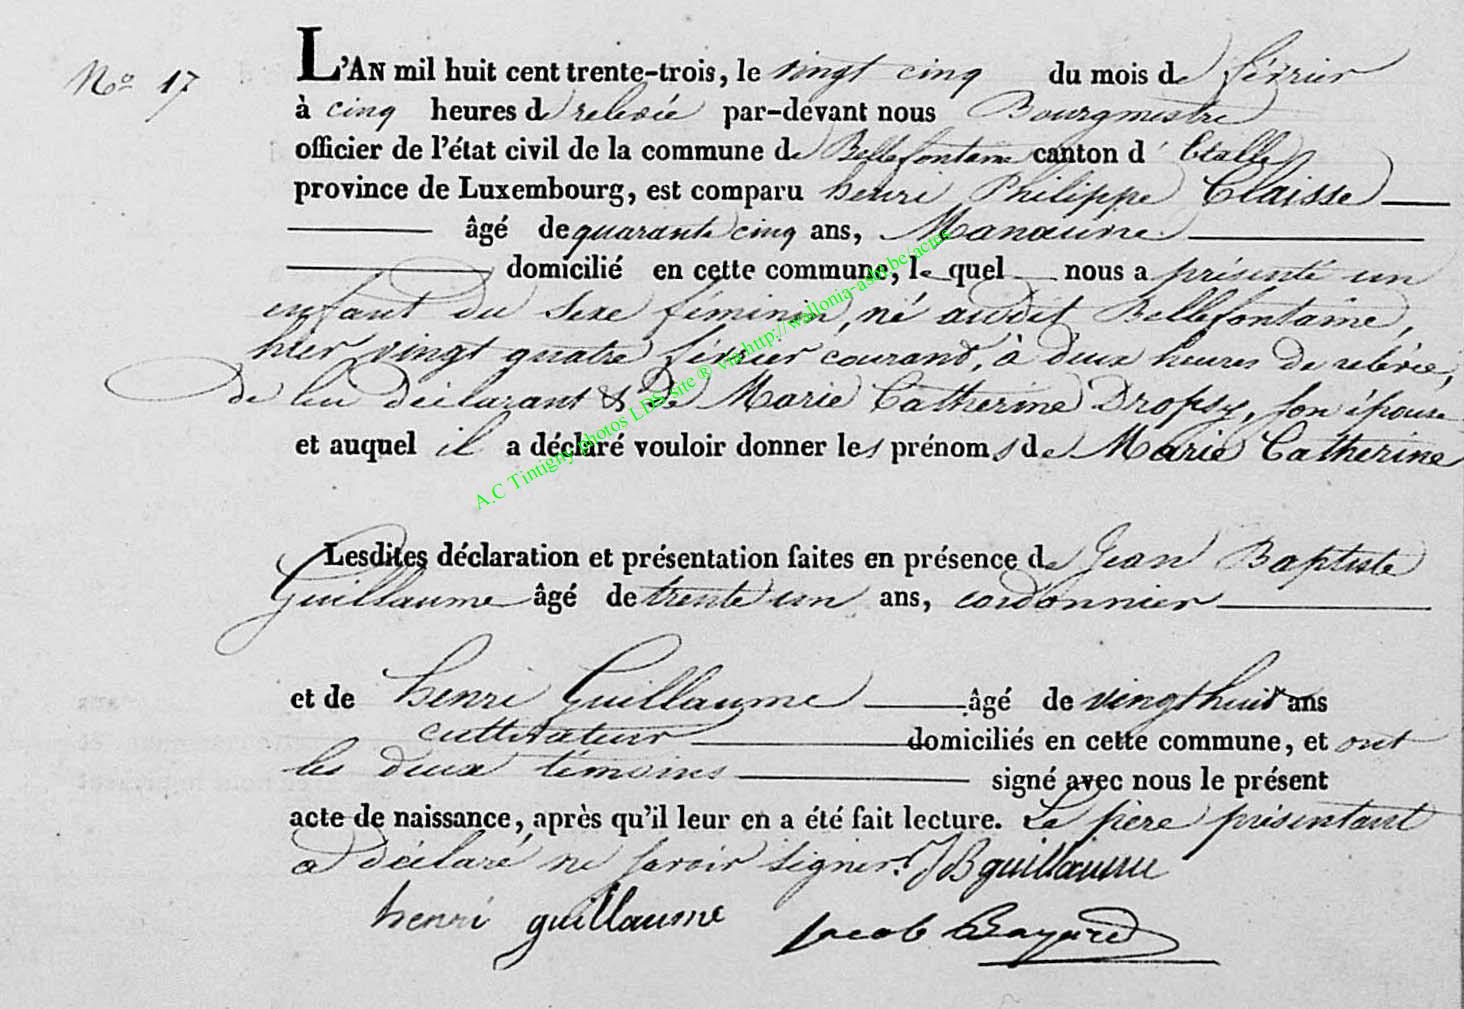 N° 17
L'AN mil huit cent trente-trois, le vingt cinq du mois de février
à cinq heures de relevée par-devant nous Bourgmestre
officier de l'état civil de la commune de Bellefontaine canton d' Etalle
province de Luxembourg, est comparu henri Philippe Claisse
âgé de quarante cinq ans, Manœuvre
domicilié en cette commune, le quel nous a présenté un
enfant du sexe féminin, né audit Bellefontaine,
hier vingt quatre février courant, à deux heures de relevée,
de lui déclarant & de Marie Catherine Dropsy, son épouse
et auquel il a déclaré vouloir donner les prénoms de Marie Catherine
A.C Tintigny photos LDS site ® via http://wallonia-asbl.be/actes
Lesdites déclaration et présentation faites en présence de Jean Baptiste
Guillaume âgé de trente un ans, cordonnier
et de henri Guillaume âgé de vingt huit ans
cultivateur domiciliés en cette commune, et ont
les deux témoins signé avec nous le présent
acte de naissance, après qu'il leur en a été fait lecture. Le père présentant
a déclaré ne savoir signer. JB guillaume
henri guillaume Jacob Bayard